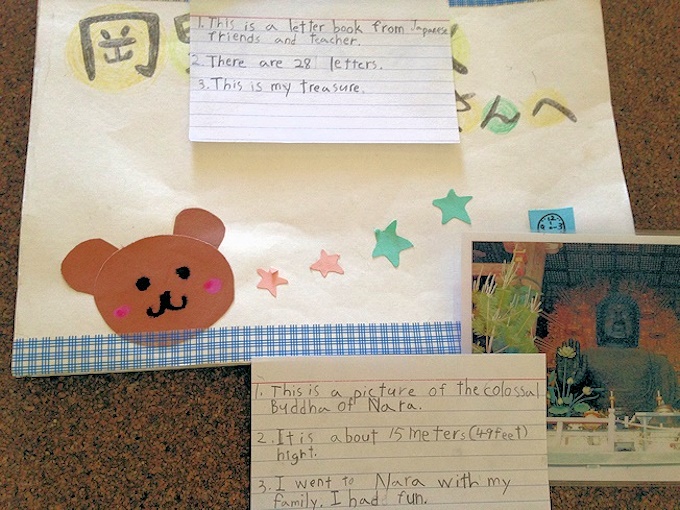 岡
1. This is a letter book from Japanese
friends and teacher.
2. There are 28 letters.
3. This is my treasure.
さんへ
12
9 3
1. This is a picture of the colossal
Buddha of Nara.
2. It is about 15 meters (49 feet)
hight.
3. I went to Nara with my
family. I had fun.